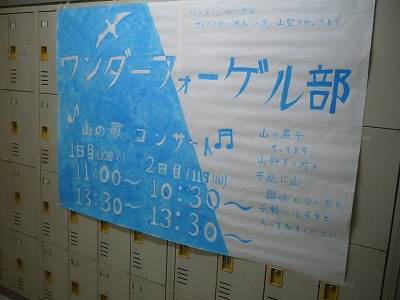 ワンダーフォーゲル
山登りやってます。
ワンダーフォーゲル部
山の歌 コンサート
1日目(10日土) 2日目(11日(日))
11:00~ 10:30~
13:30~ 13:30~
山の展示
やってます。
山好きの方も
普段は山に
興味のない方も
気軽にふらりと
入ってみてください。